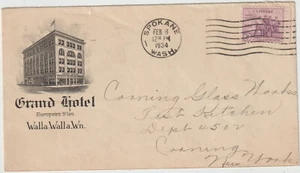 SPOKANE
FEB 8
12 PM
1934
WASH.
Grand Hotel
European Plan
Walla Walla, Wn.
Corning Glass Works
Test Kitchen
Dept 4502
Corning
New York